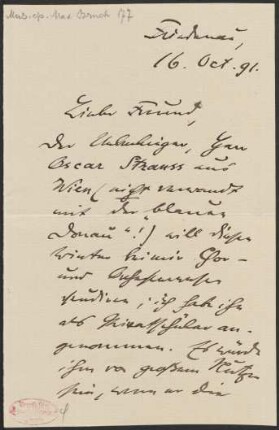 Mus. ep. Max Bruch 177
Friedenau,
16. Oct. 91.
Lieber Freund,
Der Ueberbringer, Herr
Oscar Strauss aus
Wien (nicht verwandt
mit der „blauen
Donau“!) will diesen
Winter bei mir Chor-
und Orchesterwerke
studiren; ich habe ihn
als Privatschüler an-
genommen. Es würde
ihm von großem Nutzen
sein, wenn er die